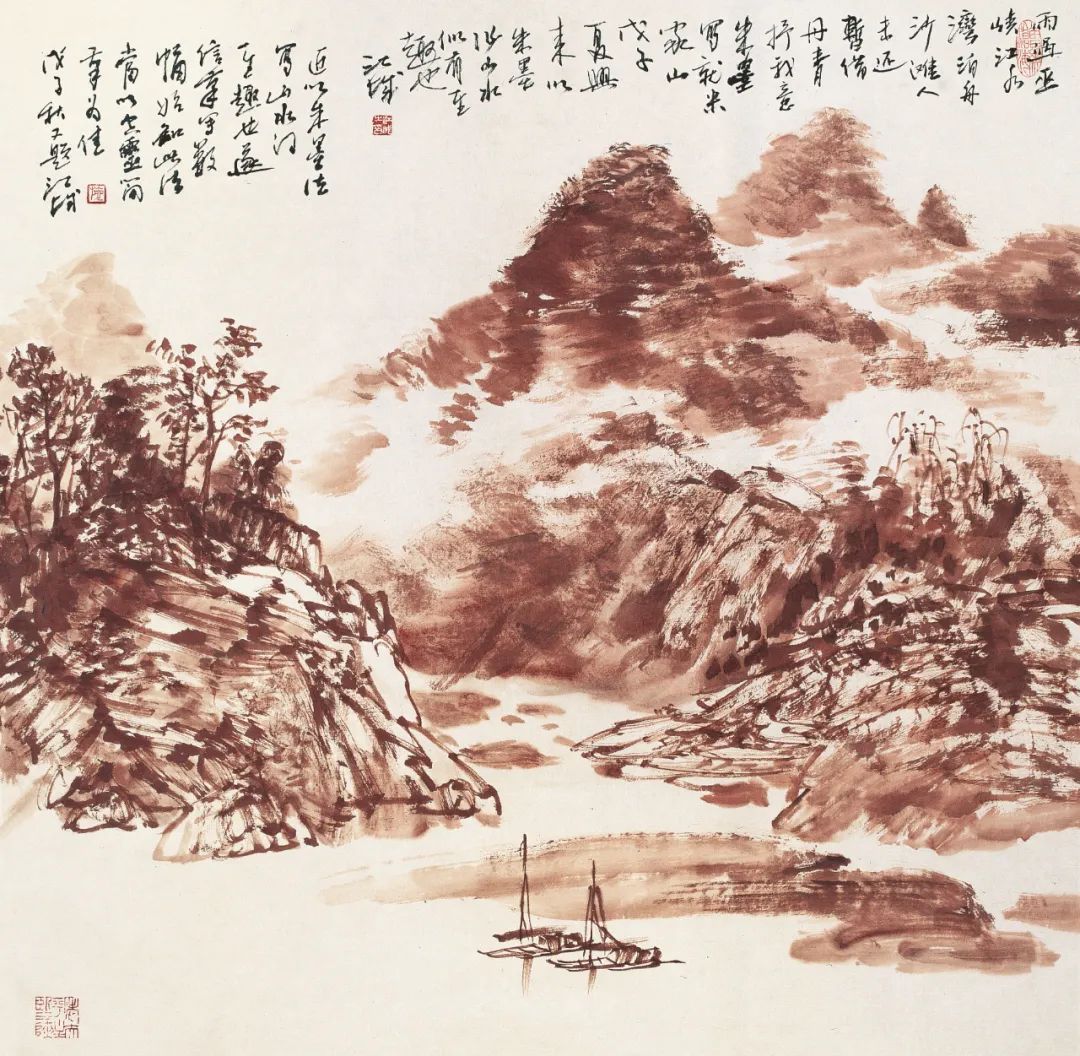 雨過巫
峽江水
灣泊舟
沙灘人
未還
暫借
丹青
抒我意
朱墨
寫就米
家山
戊子
夏興
來以
朱墨
作山水
似有至
趣也
江城
近以朱墨法
寫山水
至趣也遂
信筆寫數
幅始知此法
當以空靈簡
筆為佳
戊子秋又題江城